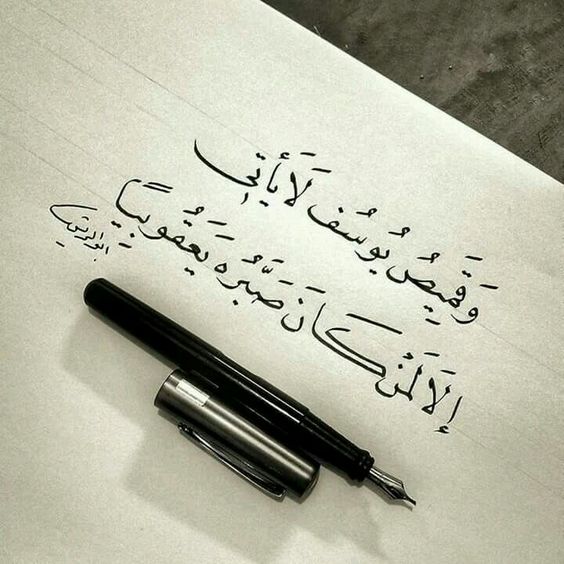 وَقَمِيصُ يُوسُف لَا يَأتِي
إلَا لِمَنْ كَانَ صَبْرُه يَعْقُوبيًا